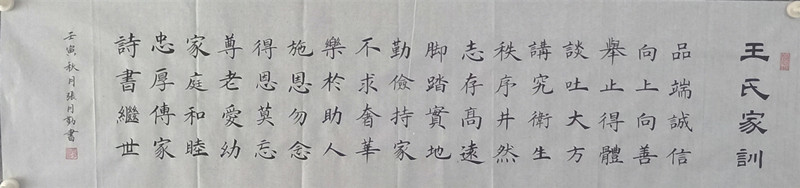 王氏家訓
品端誠信
向上向善
舉止得體
談吐大方
講究衛生
秩序井然
志存高遠
脚踏實地
勤儉持家
不求奢華
樂於助人
施恩勿念
得恩莫忘
尊老愛幼
家庭和睦
忠厚傳家
詩書繼世
壬寅秋月張月勤書